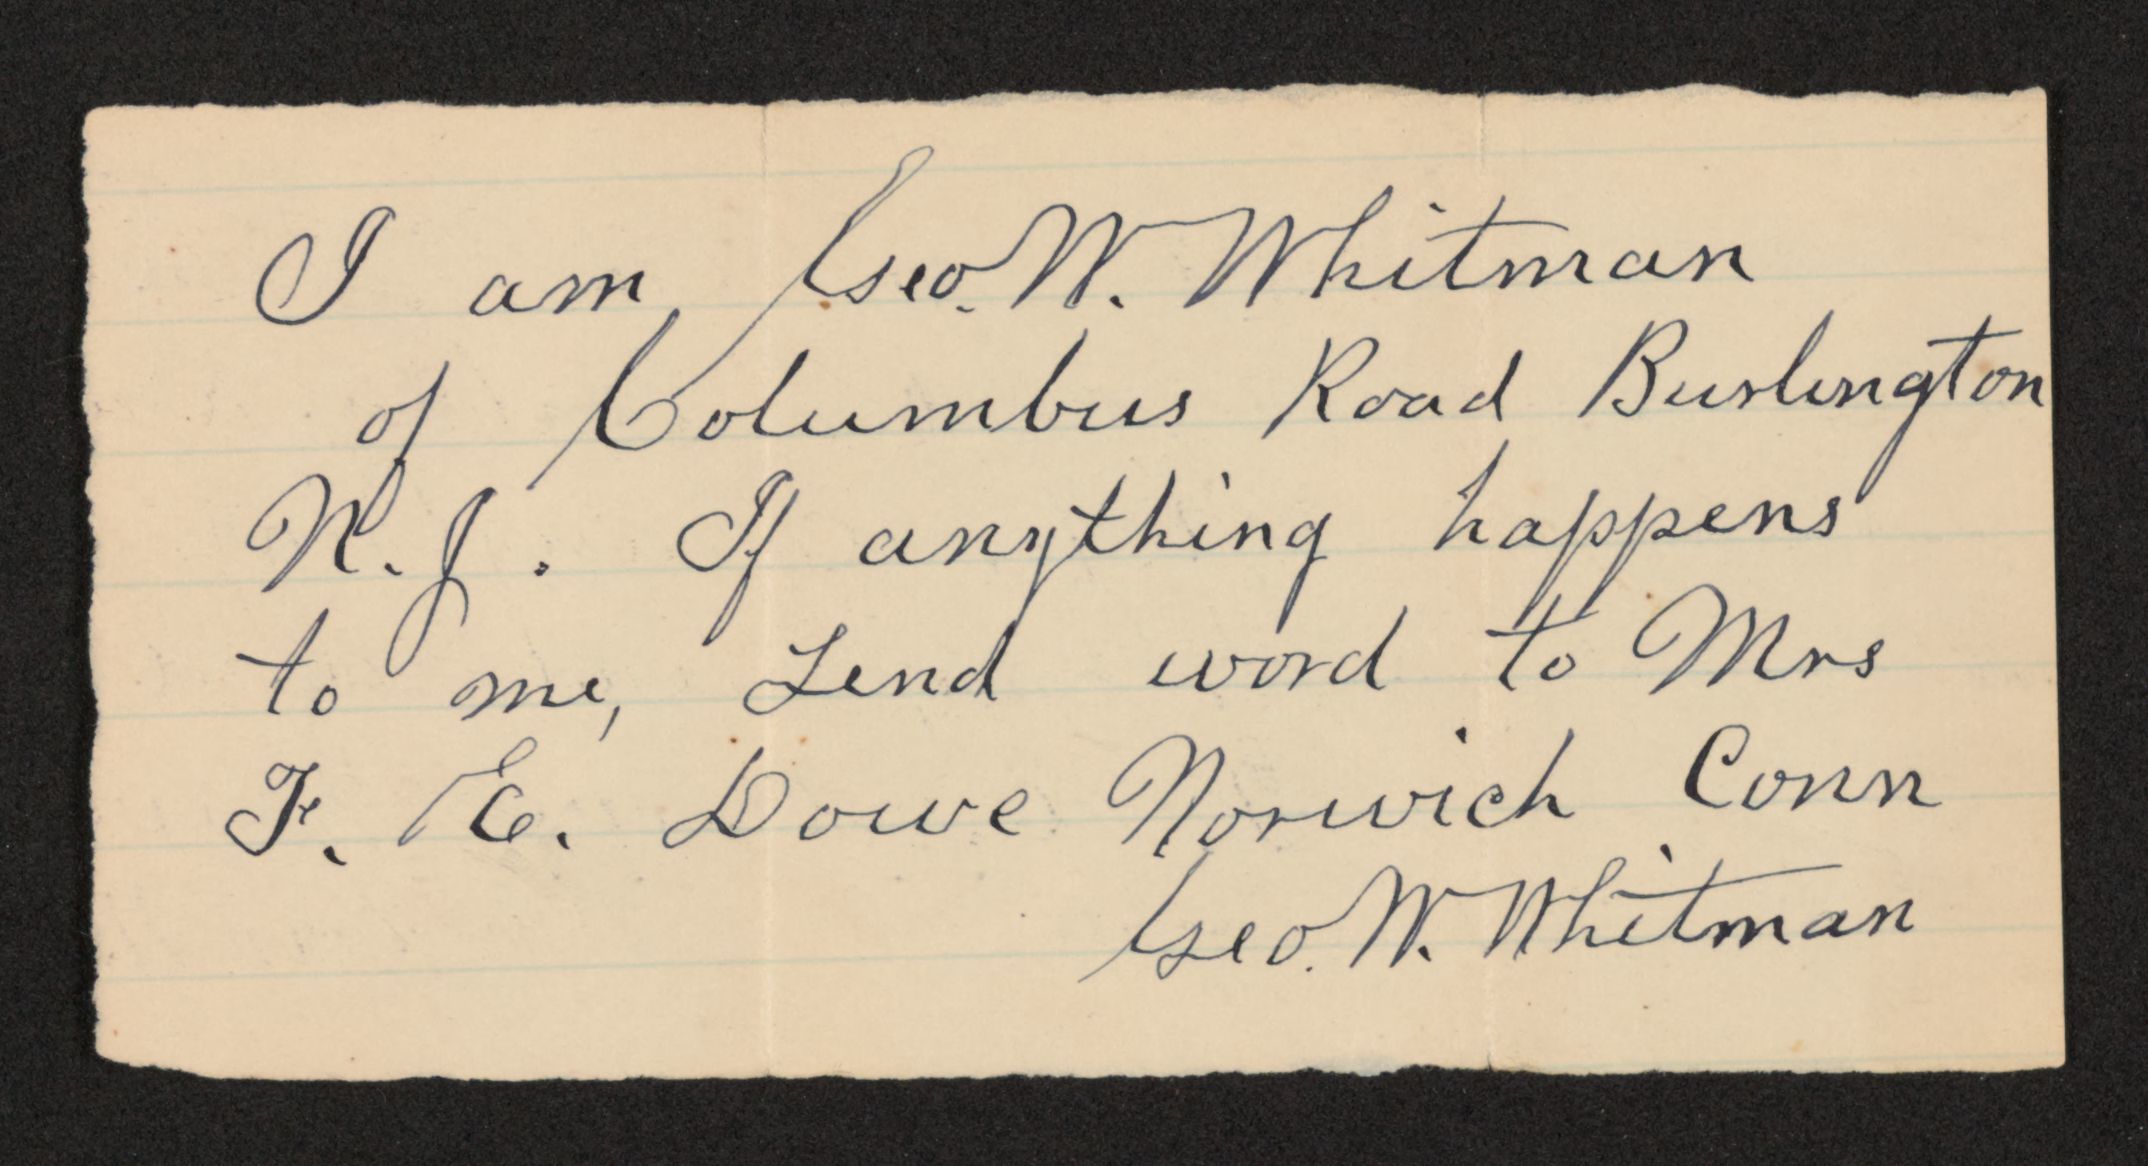 I am Geo. W. Whitman
of Columbus Road Burlington
N. J. If anything happens
to me, send word to Mrs
F. E. Dowe Norwich Conn
Geo. W. Whitman